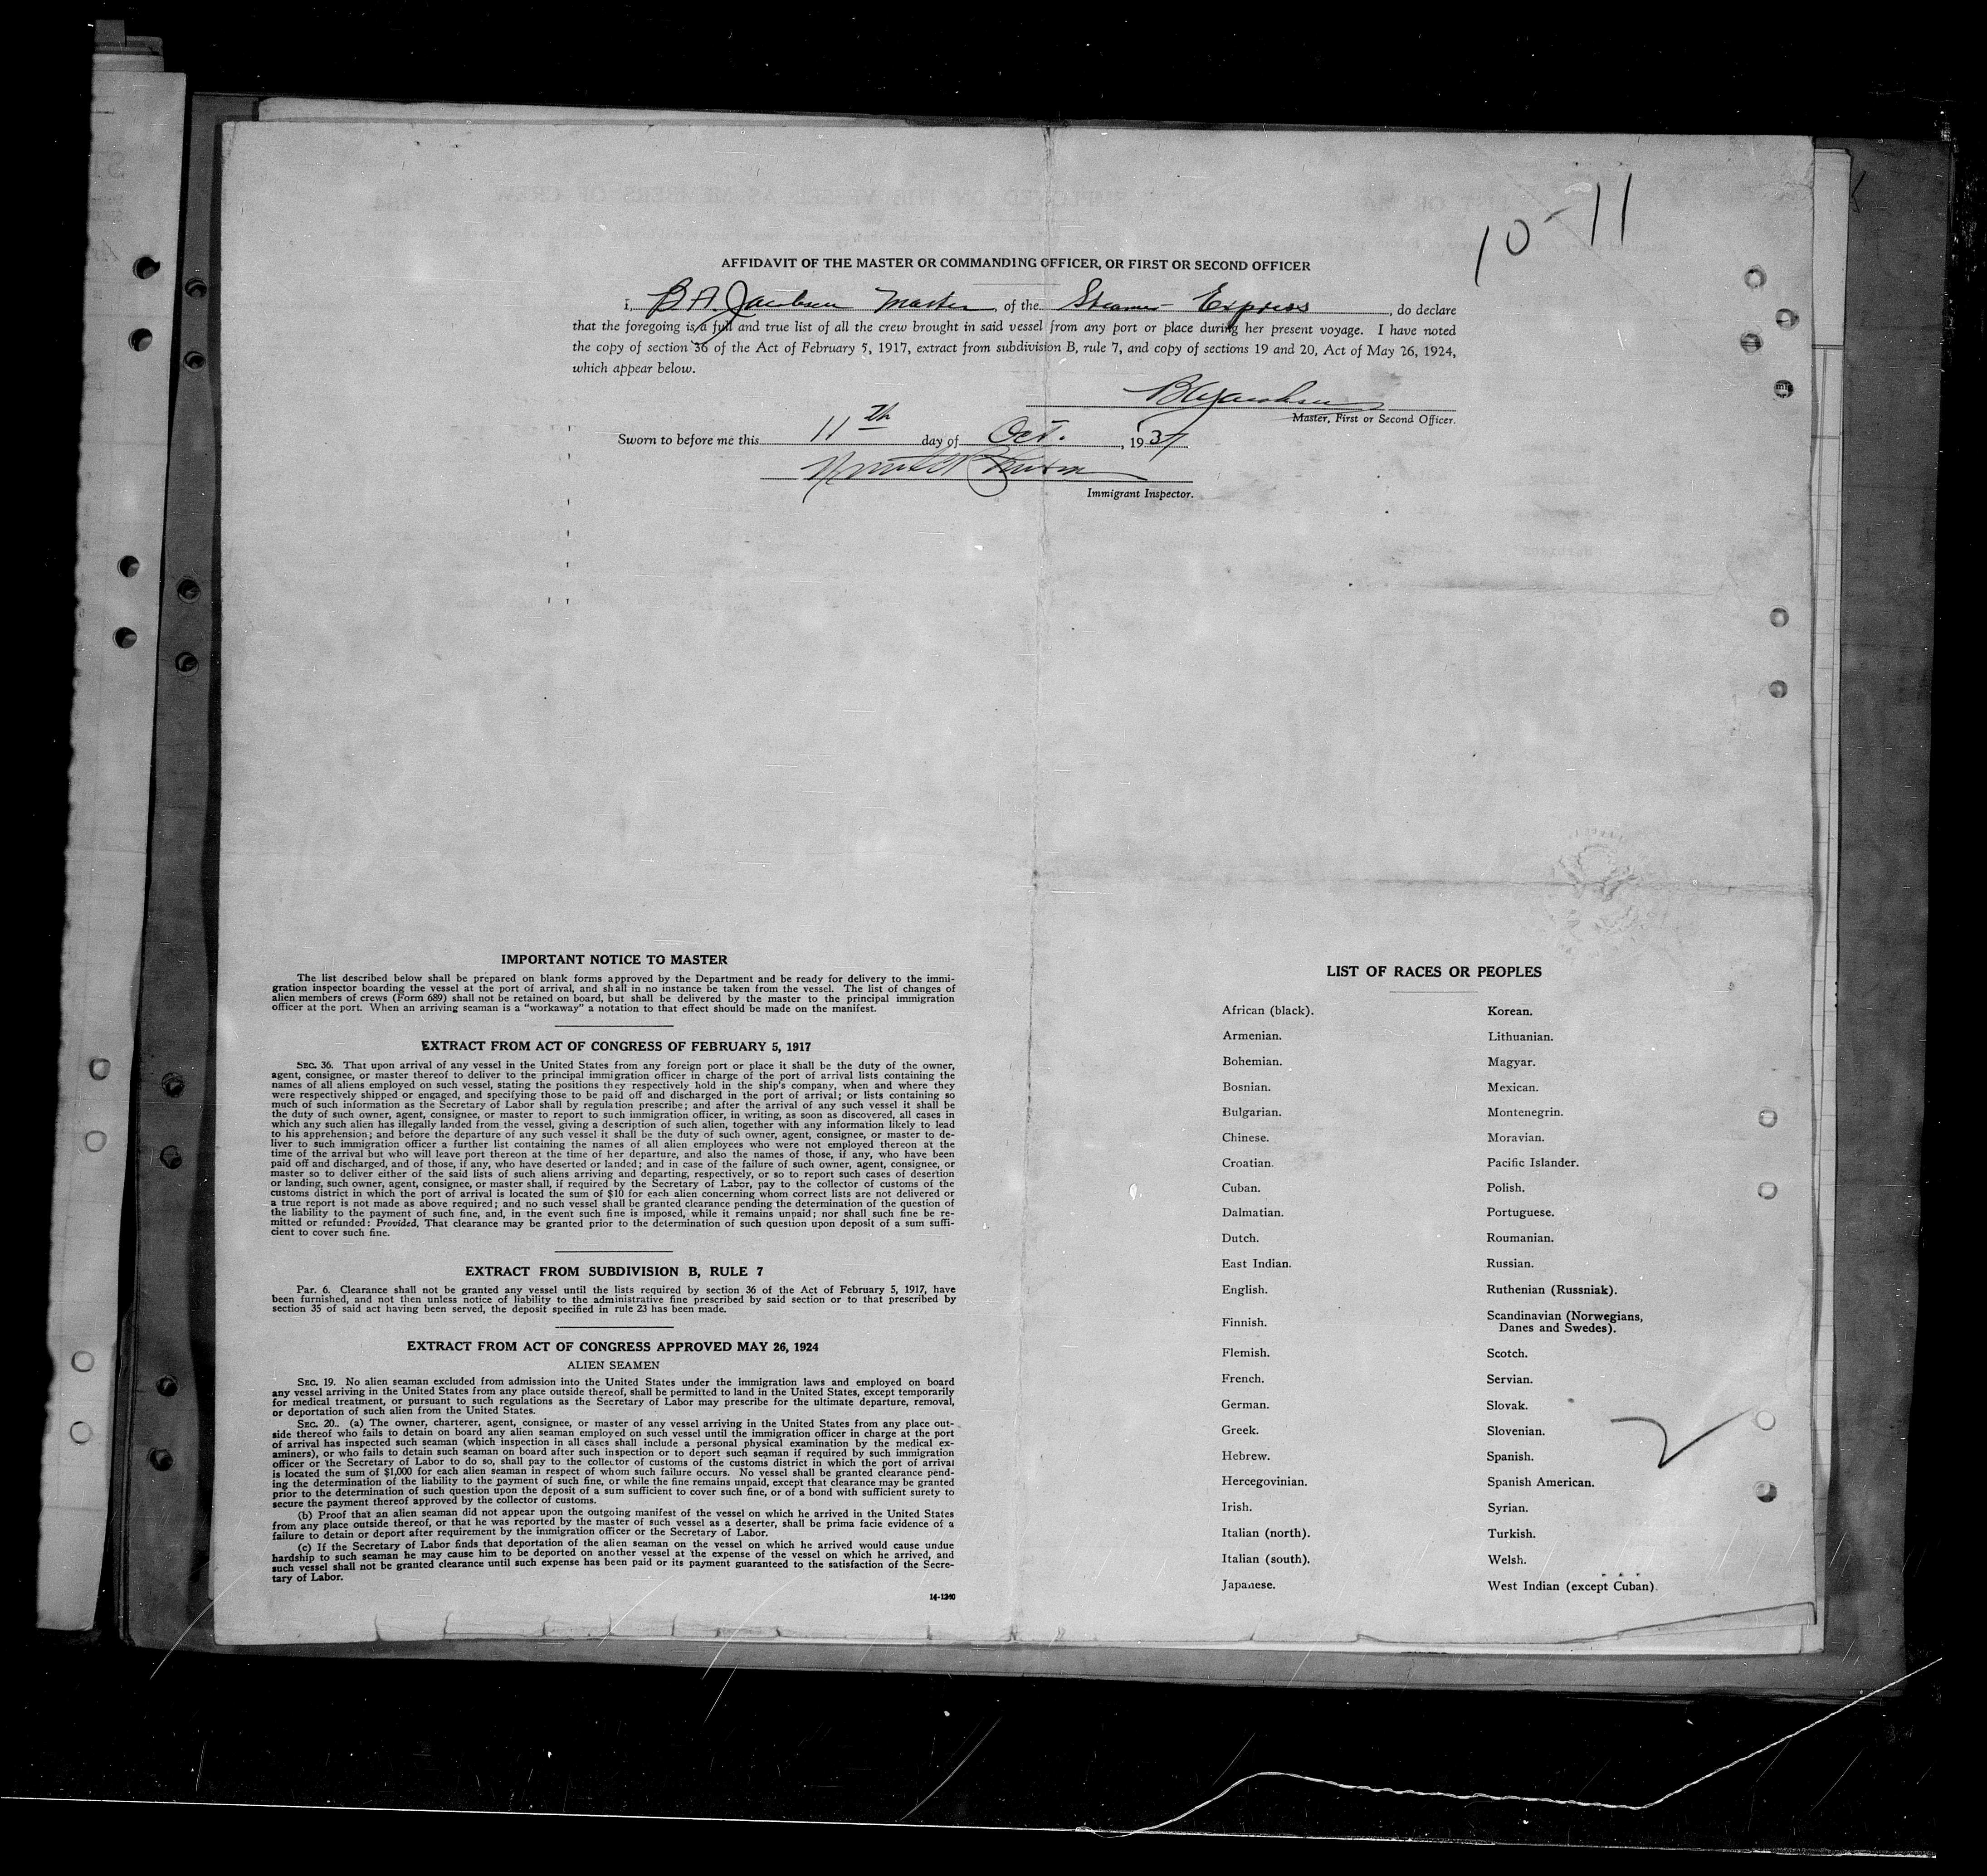 10-11
AFFIDAVIT OF THE MASTER OR COMMANDING OFFICER, OR FIRST OR SECOND OFFICER
I, B. A. Jacobsen Master, of the Steamer Express, do declare
that the foregoing is a full and true list of all the crew brought in said vessel from any port or place during her present voyage. I have noted
the copy of section 36 of the Act of February 5, 1917, extract from subdivision B, rule 7, and copy of sections 19 and 20, Act of May 26, 1924,
which appear below.
B A Jacobsen
Master, First or Second Officer.
Sworn to before me this 11th day of Oct., 1937
Immigrant Inspector.
IMPORTANT NOTICE TO MASTER
The list described below shall be prepared on blank forms approved by the Department and be ready for delivery to the immi-
gration inspector boarding the vessel at the port of arrival, and shall in no instance be taken from the vessel. The list of changes of
alien members of crews (Form 689) shall not be retained on board, but shall be delivered by the master to the principal immigration
officer at the port. When an arriving seaman is a "workaway" a notation to that effect should be made on the manifest.
EXTRACT FROM ACT OF CONGRESS OF FEBRUARY 5, 1917
SEC. 36. That upon arrival of any vessel in the United States from any foreign port or place it shall be the duty of the owner,
agent, consignee, or master thereof to deliver to the principal immigration officer in charge of the port of arrival lists containing the
names of all aliens employed on such vessel, stating the positions they respectively hold in the ship's company, when and where they
were respectively shipped or engaged, and specifying those to be paid off and discharged in the port of arrival; or lists containing so
much of such information as the Secretary of Labor shall by regulation prescribe; and after the arrival of any such vessel it shall be
the duty of such owner, agent, consignee, or master to report to such immigration officer, in writing, as soon as discovered, all cases in
which any such alien has illegally landed from the vessel, giving a description of such alien, together with any information likely to lead
to his apprehension; and before the departure of any such vessel it shall be the duty of such owner, agent, consignee, or master to de-
liver to such immigration officer a further list containing the names of all alien employees who were not employed thereon at the
time of the arrival but who will leave port thereon at the time of her departure, and also the names of those, if any, who have been
paid off and discharged, and of those, if any, who have deserted or landed; and in case of the failure of such owner, agent, consignee, or
master so to deliver either of the said lists of such aliens arriving and departing, respectively, or so to report such cases of desertion
or landing, such owner, agent, consignee, or master shall, if required by the Secretary of Labor, pay to the collector of customs of the
customs district in which the port of arrival is located the sum of $10 for each alien concerning whom correct lists are not delivered or
a true report is not made as above required; and no such vessel shall be granted clearance pending the determination of the question of
the liability to the payment of such fine, and, in the event such fine is imposed, while it remains unpaid; nor shall such fine be re-
mitted or refunded: Provided, That clearance may be granted prior to the determination of such question upon deposit of a sum suffi-
cient to cover such fine.
EXTRACT FROM SUBDIVISION B, RULE 7
Par. 6. Clearance shall not be granted any vessel until the lists required by section 36 of the Act of February 5, 1917, have
been furnished, and not then unless notice of liability to the administrative fine prescribed by said section or to that prescribed by
section 35 of said act having been served, the deposit specified in rule 23 has been made.
EXTRACT FROM ACT OF CONGRESS APPROVED MAY 26, 1924
ALIEN SEAMEN
SEC. 19. No alien seaman excluded from admission into the United States under the immigration laws and employed on board
any vessel arriving in the United States from any place outside thereof, shall be permitted to land in the United States, except temporarily
for medical treatment, or pursuant to such regulations as the Secretary of Labor may prescribe for the ultimate departure, removal,
or deportation of such alien from the United States.
SEC. 20. (a) The owner, charterer, agent, consignee, or master of any vessel arriving in the United States from any place out-
side thereof who fails to detain on board any alien seaman employed on such vessel until the immigration officer in charge at the port
of arrival has inspected such seaman (which inspection in all cases shall include a personal physical examination by the medical ex-
aminers), or who fails to detain such seaman on board after such inspection or to deport such seaman if required by such immigration
officer or the Secretary of Labor to do so, shall pay to the collector of customs of the customs district in which the port of arrival
is located the sum of $1,000 for each alien seaman in respect of whom such failure occurs. No vessel shall be granted clearance pend-
ing the determination of the liability to the payment of such fine, or while the fine remains unpaid, except that clearance may be granted
prior to the determination of such question upon the deposit of a sum sufficient to cover such fine, or of a bond with sufficient surety to
secure the payment thereof approved by the collector of customs.
(b) Proof that an alien seaman did not appear upon the outgoing manifest of the vessel on which he arrived in the United States
from any place outside thereof, or that he was reported by the master of such vessel as a deserter, shall be prima facie evidence of a
failure to detain or deport after requirement by the immigration officer or the Secretary of Labor.
(c) If the Secretary of Labor finds that deportation of the alien seaman on the vessel on which he arrived would cause undue
hardship to such seaman he may cause him to be deported on another vessel at the expense of the vessel on which he arrived, and
such vessel shall not be granted clearance until such expense has been paid or its payment guaranteed to the satisfaction of the Secre-
tary of Labor.
14-1240
LIST OF RACES OR PEOPLES
African (black).
Armenian.
Bohemian.
Bosnian.
Bulgarian.
Chinese.
Croatian.
Cuban.
Dalmatian.
Dutch.
East Indian.
English.
Finnish.
Flemish.
French.
German.
Greek.
Hebrew.
Hercegovinian.
Irish.
Italian (north).
Italian (south).
Japanese.
Korean.
Lithuanian.
Magyar.
Mexican.
Montenegrin.
Moravian.
Pacific Islander.
Polish.
Portuguese.
Roumanian.
Russian.
Ruthenian (Russniak).
Scandinavian (Norwegians,
Danes and Swedes).
Scotch.
Servian.
Slovak.
Slovenian.
Spanish.
Spanish American.
Syrian.
Turkish.
Welsh.
West Indian (except Cuban).